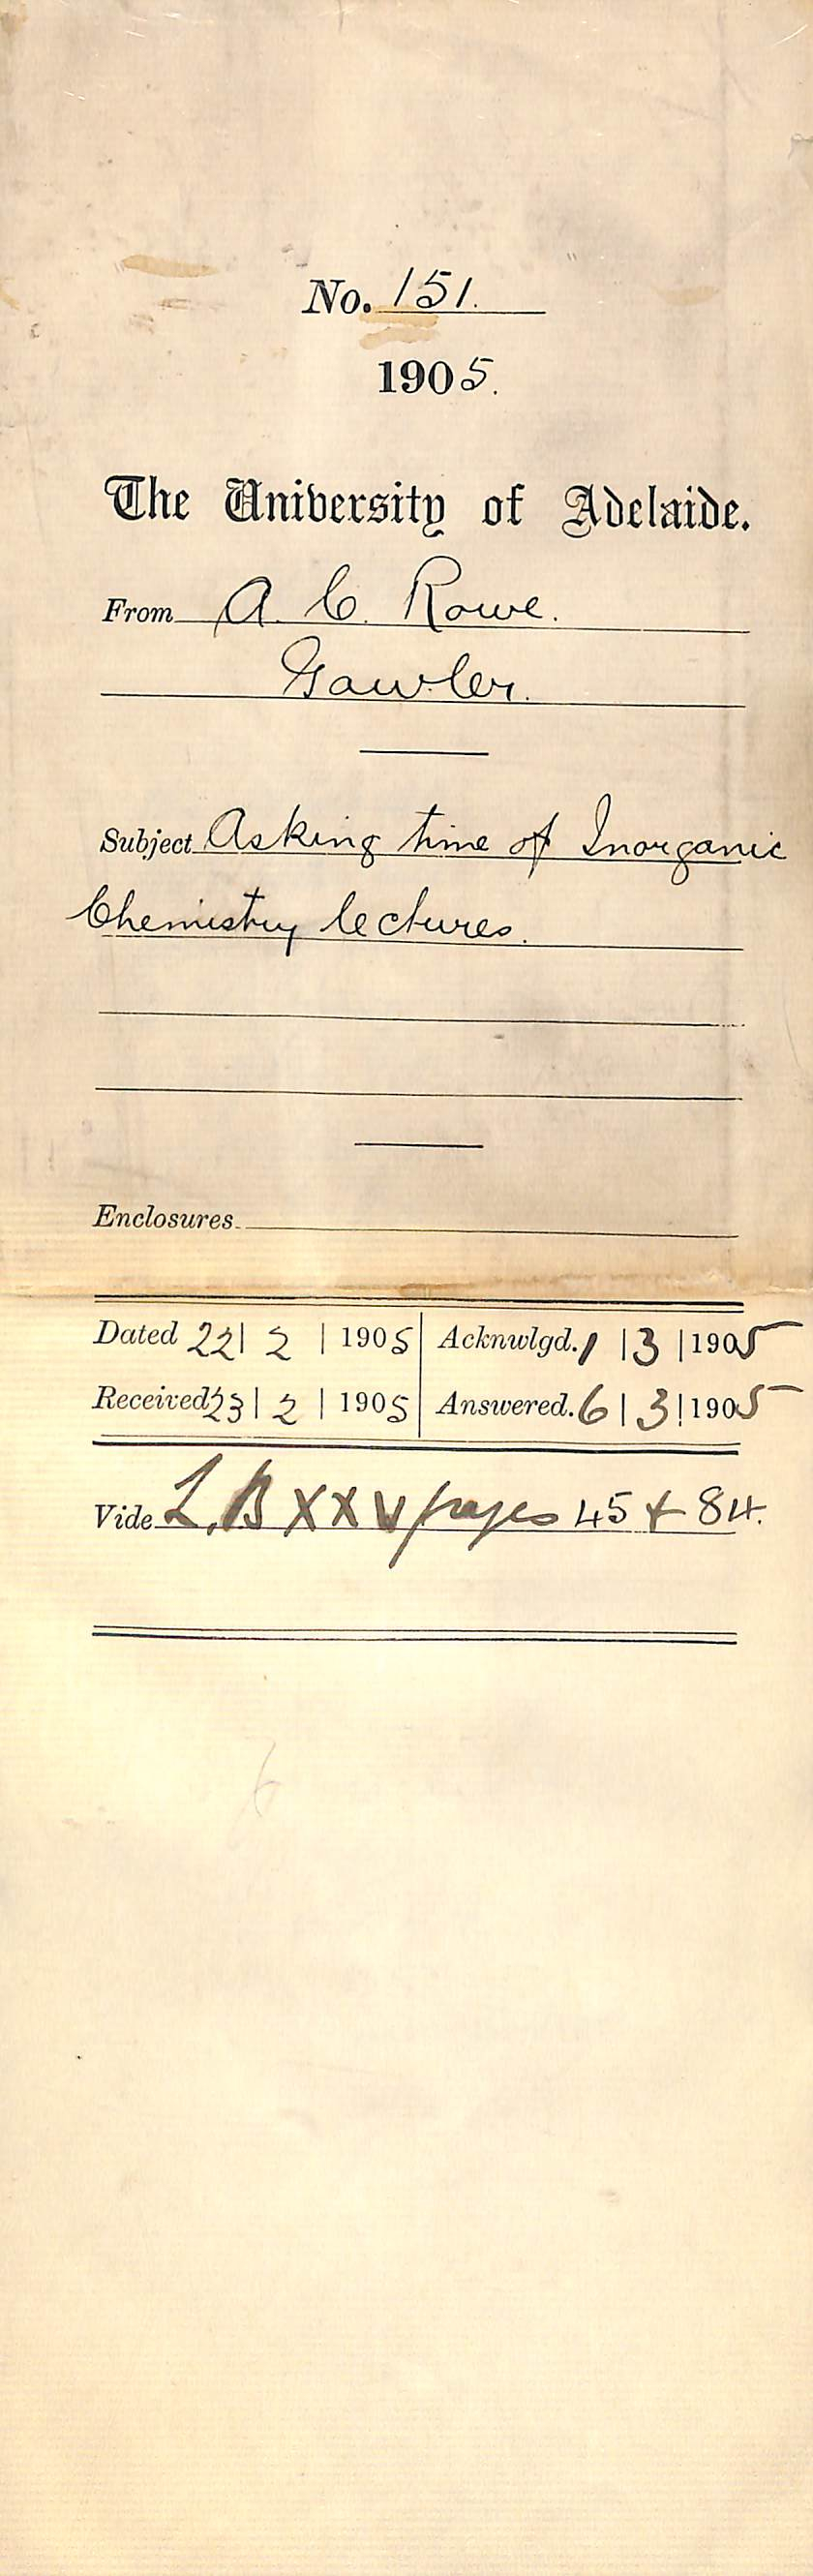 No. 151.
1905.
The University of Adelaide.
From A. C. Rowe.
Gawler.
Subject Asking time of Inorganic
Chemistry lectures.
Enclosures
Dated 22 | 2 | 1905 | Acknwlgd. 1 | 3 | 1905
Received 23 | 2 | 1905 | Answered. 6 | 3 | 1905
Vide L.B XXV pages 45 & 84.